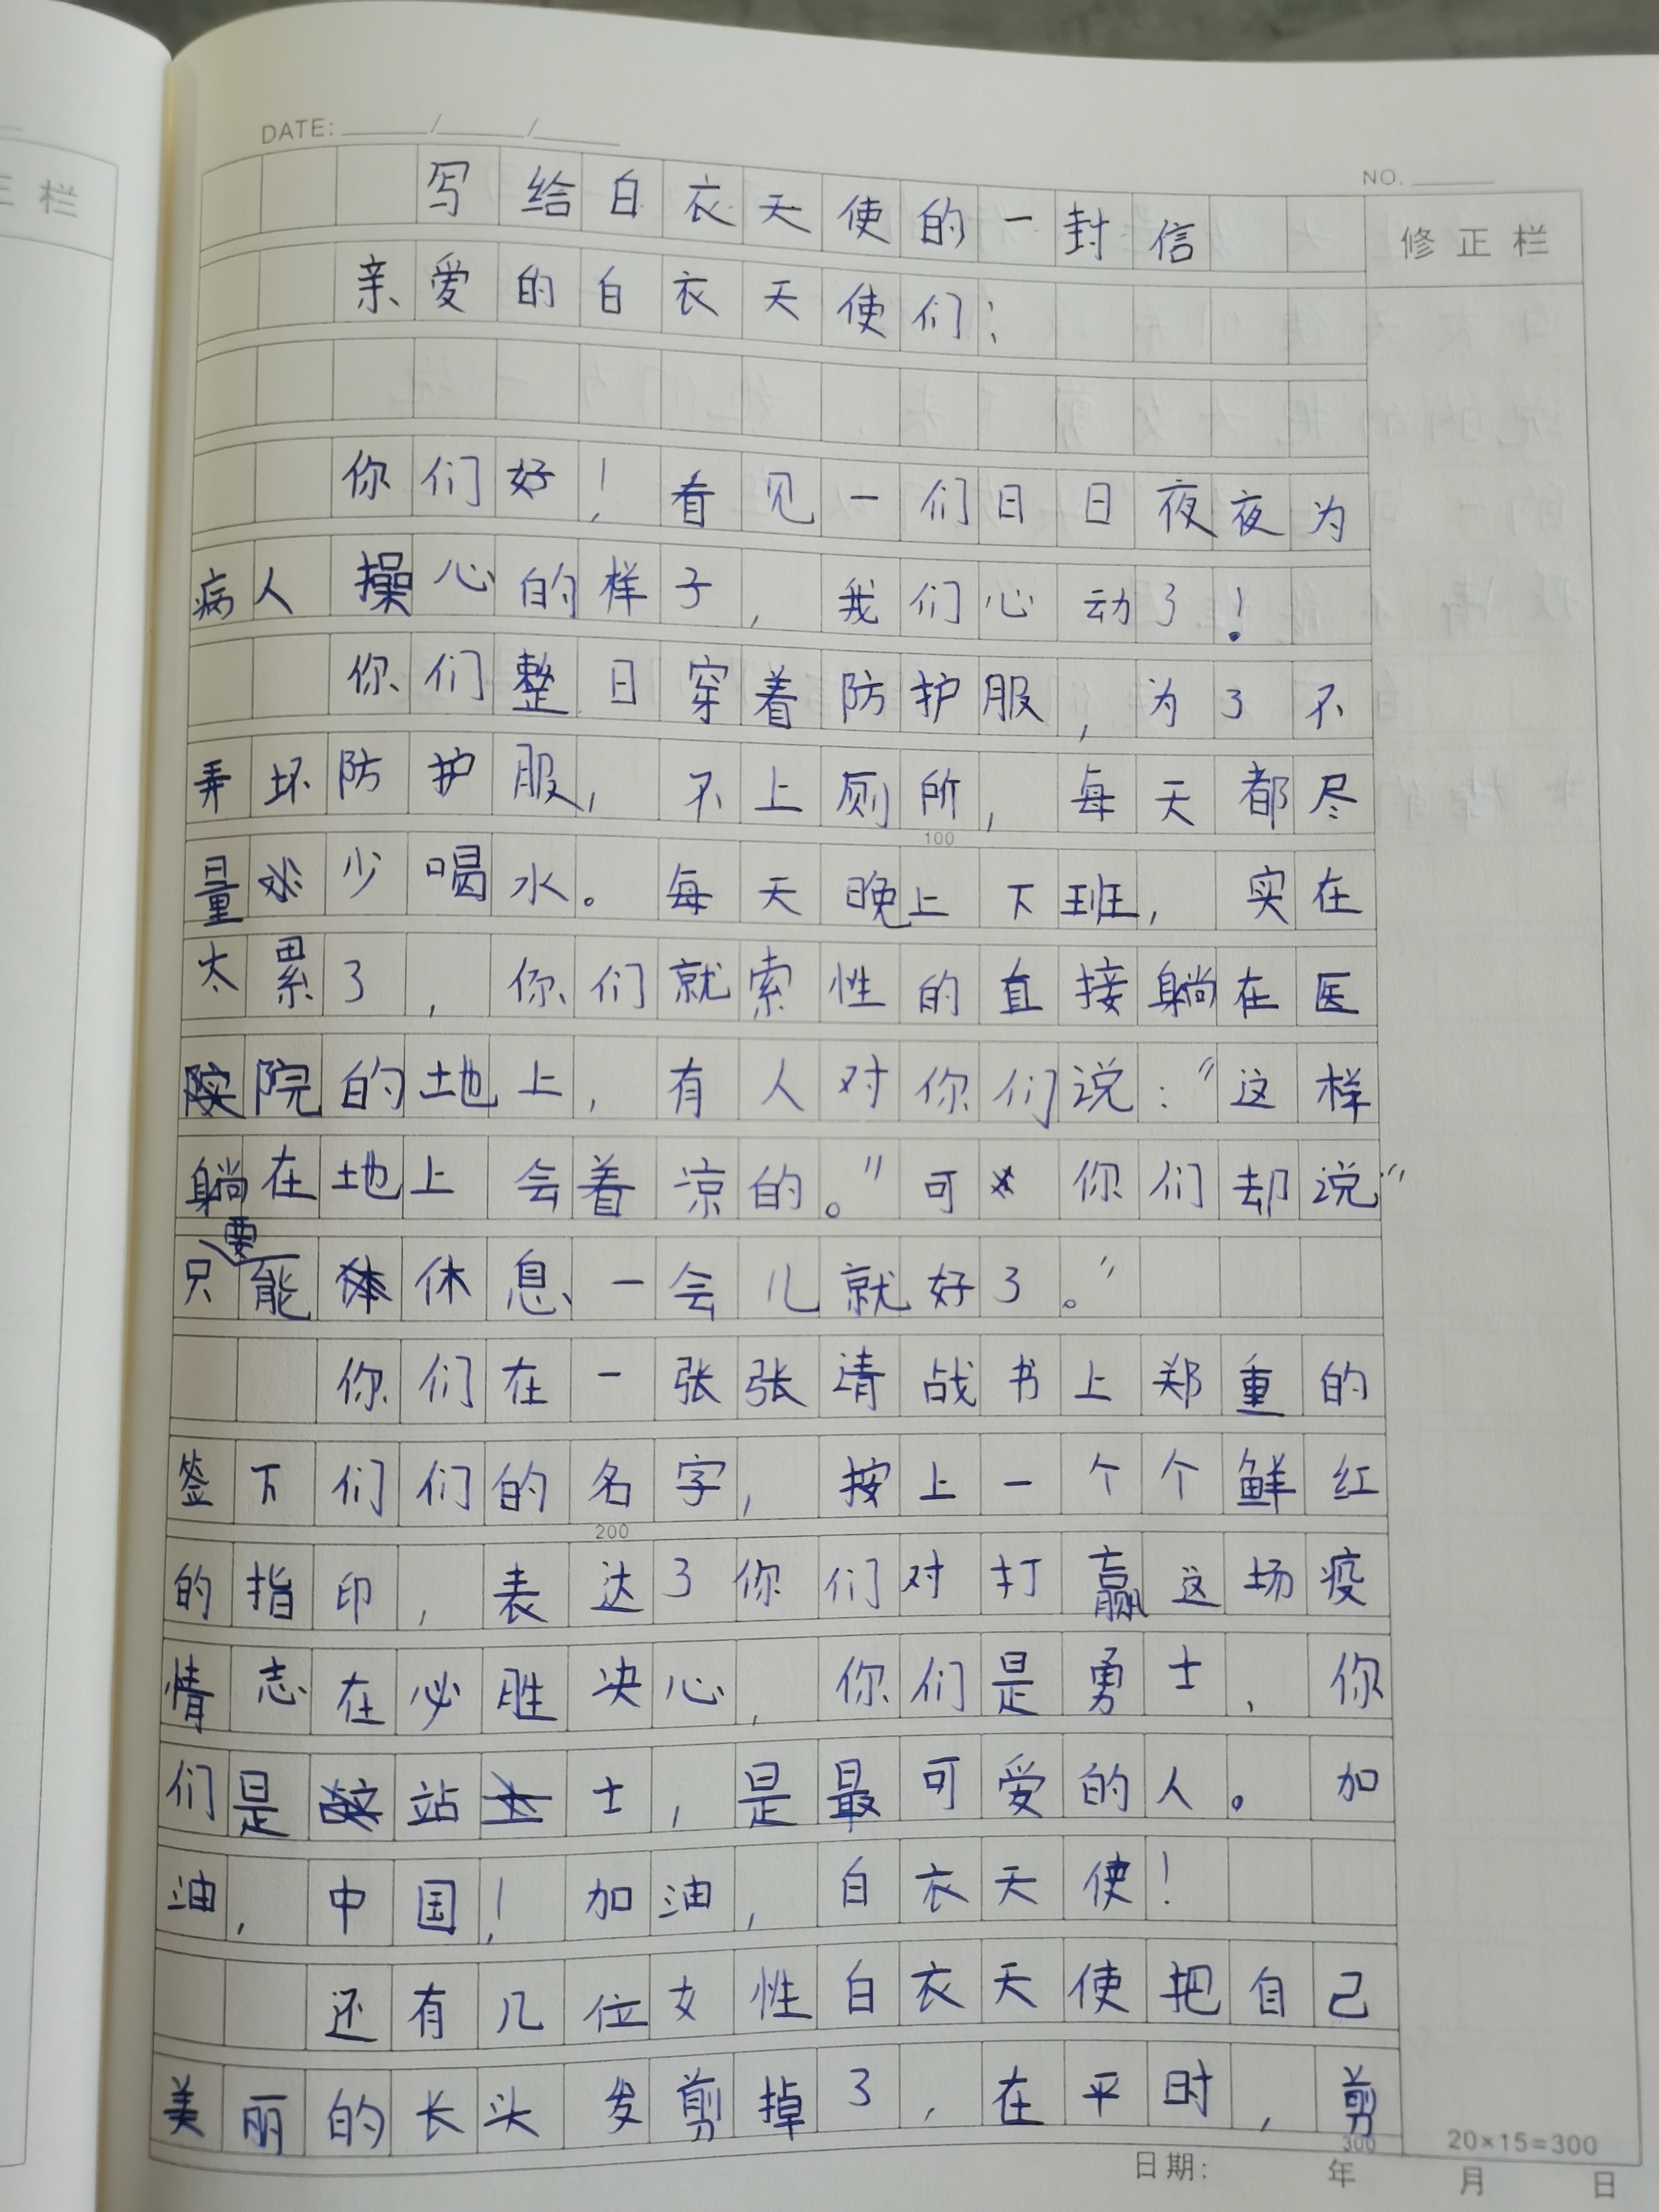 DATE: ____/____/____
NO. ____
修正栏
写给白衣天使的一封信
亲爱的白衣天使们：
你们好！看见一们日日夜夜为
病人操心的样子，我们心动了！
你们整日穿着防护服，为了不
弄坏防护服，不上厕所，每天都尽
100
量少喝水。每天晚上下班，实在
太累了，你们就索性的直接躺在医
院的地上，有人对你们说：“这样
躺在地上会着凉的。”可你们却说“
只要能休息一会儿就好了。”
你们在一张张请战书上郑重的
签下们们的名字，按上一个个鲜红
200
的指印，表达了你们对打赢这场疫
情志在必胜决心，你们是勇士，你
们是站士，是最可爱的人。加
油，中国！加油，白衣天使！
还有几位女性白衣天使把自己
美丽的长头发剪掉了，在平时，剪
300
20×15=300
日期： 年 月 日
正栏